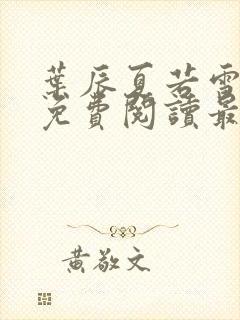 葉辰夏若雪
免費閱讀最
黃敬文